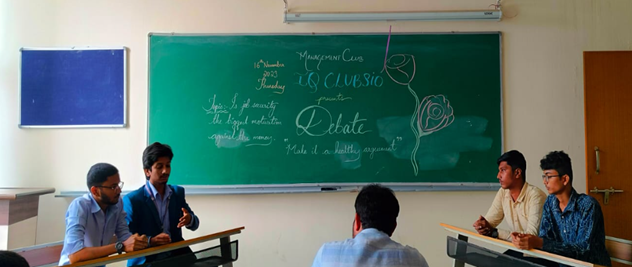 16th November
2023
Thursday
Management Club
IQ CLUBSIO
presents
Debate
"Make it a healthy argument"
Topic: Is job security
the biggest motivation
against the money.